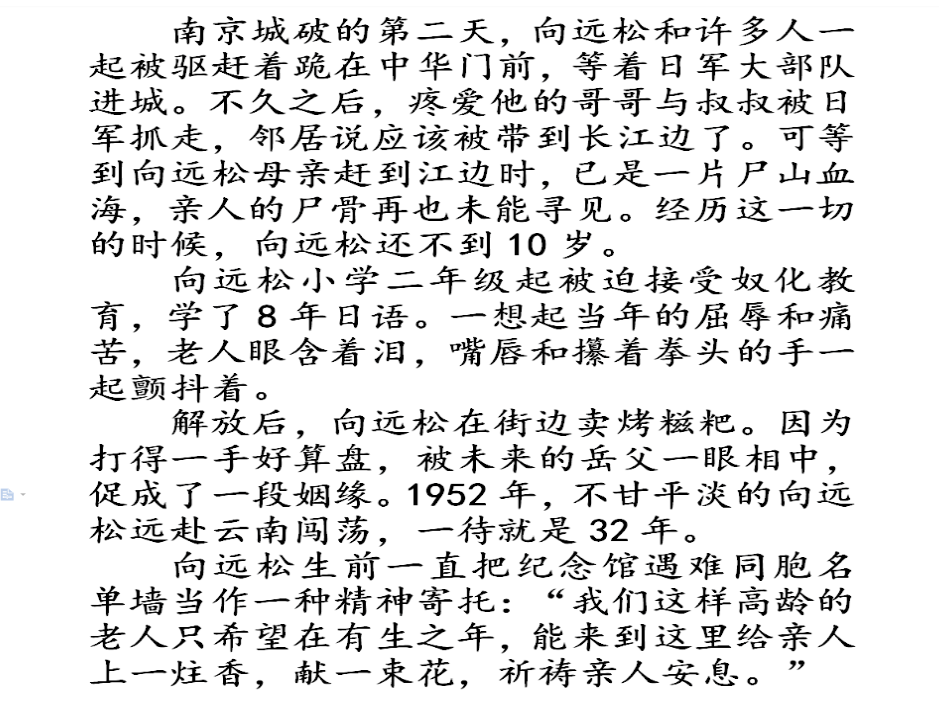 南京城破的第二天，向远松和许多人一
起被驱赶着跪在中华门前，等着日军大部队
进城。不久之后，疼爱他的哥哥与叔叔被日
军抓走，邻居说应该被带到长江边了。可等
到向远松母亲赶到江边时，已是一片尸山血
海，亲人的尸骨再也未能寻见。经历这一切
的时候，向远松还不到 10 岁。
向远松小学二年级起被迫接受奴化教
育，学了 8 年日语。一想起当年的屈辱和痛
苦，老人眼含着泪，嘴唇和攥着拳头的手一
起颤抖着。
解放后，向远松在街边卖烤糍粑。因为
打得一手好算盘，被未来的岳父一眼相中，
促成了一段姻缘。1952 年，不甘平淡的向远
松远赴云南闯荡，一待就是 32 年。
向远松生前一直把纪念馆遇难同胞名
单墙当作一种精神寄托：“我们这样高龄的
老人只希望在有生之年，能来到这里给亲人
上一炷香，献一束花，祈祷亲人安息。”